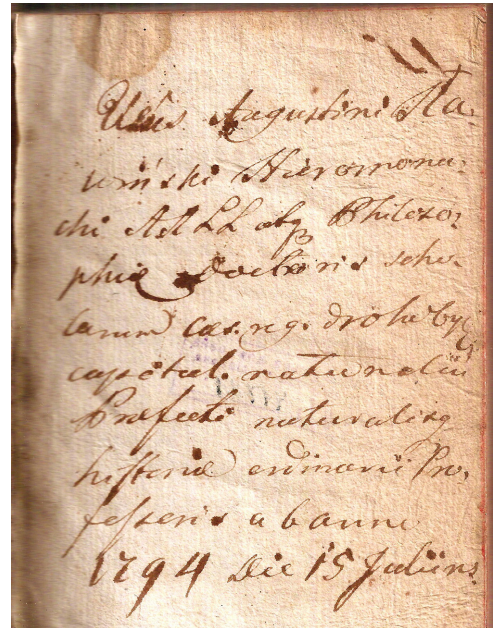 Usus Augustini Sta-
winski Hieromona-
chi AALL atq Philozo-
phiæ Doctoris scho-
larum cæs. reg. drohoby
capital. naturaliu
Præfecti naturalisq
historiæ ordinarii Pro-
fessoris ab anno
1794 Die 15 Julii